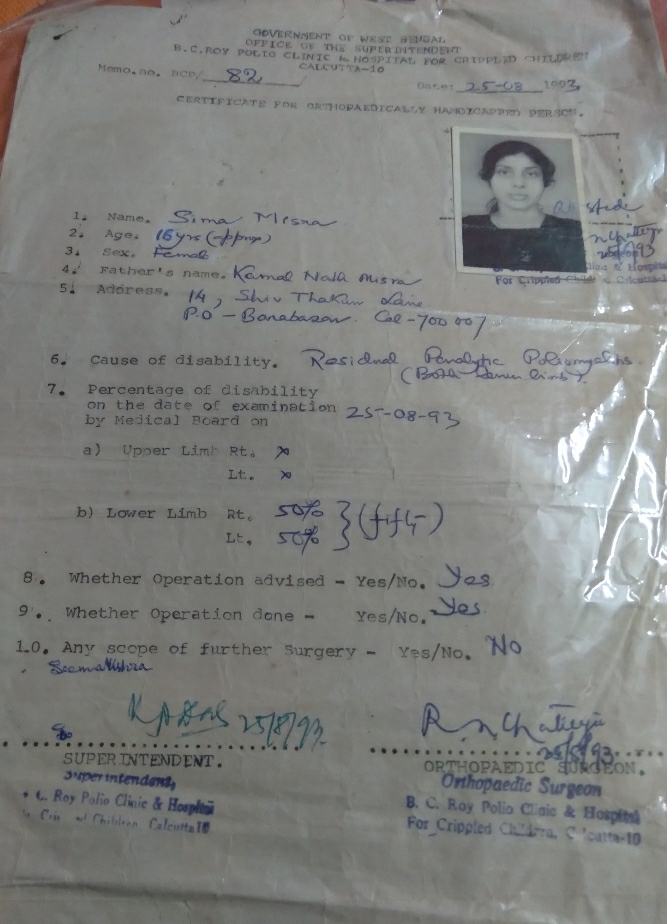 GOVERNMENT OF WEST BENGAL
OFFICE OF THE SUPERINTENDENT
B.C.ROY POLIO CLINIC & HOSPITAL FOR CRIPPLED CHILDREN
CALCUTTA-10
Memo.no. BCP/ 82 / Date: 25-08 1993
CERTIFICATE FOR ORTHOPAEDICALLY HANDICAPPED PERSON.
1. Name. Sima Misra
2. Age. 16 yrs (approx)
3. Sex. Female
4. Father's name. Kamal Nath Misra
5. Address. 14, Shiv Thakur Lane
P.O - Barabazar. Cal-700 007
Attested
R N Chatterjee
25/8/93
Clinic & Hospital
For Crippled Children Calcutta-10
6. Cause of disability. Residual Paralytic Poliomyelitis.
(Both Lower limbs).
7. Percentage of disability
on the date of examination 25-08-93
by Medical Board on
a) Upper Limb Rt. x
Lt. x
b) Lower Limb Rt. 50% } (fifty)
Lt. 50%
8. Whether Operation advised - Yes/No. Yes
9. Whether Operation done - Yes/No. Yes
10. Any scope of further Surgery - Yes/No. No
Seema Mishra
25/8/93.
R. N Chatterjee
25/8/93.
SUPERINTENDENT.
Superintendent,
C. Roy Polio Clinic & Hospital
Children, Calcutta 10
ORTHOPAEDIC SURGEON.
Orthopaedic Surgeon
B. C. Roy Polio Clinic & Hospital
For Crippled Children, Calcutta-10